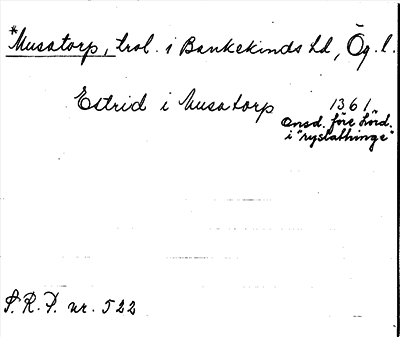 *Musatorp, trol. i Bankekinds hd, Ög. l.
Estrid i Musatorp 1361
onsd. före Lörd.
i "ryslathinge"
S. R. P. nr. 522